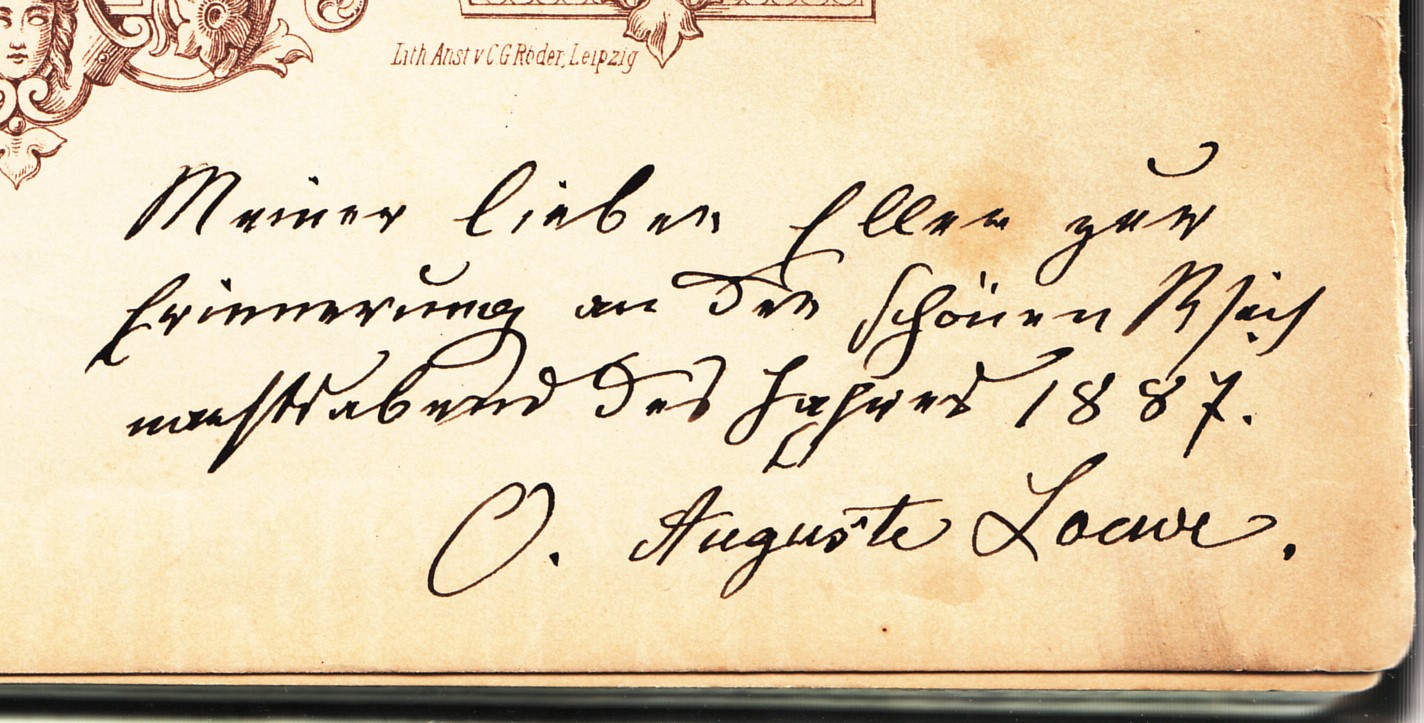 Lith Anst v C G Röder, Leipzig
Meiner lieben Ellen zur
Erinnerung an den schönen Weih
nachtsabend des Jahres 1887.
O. Auguste Loewe.